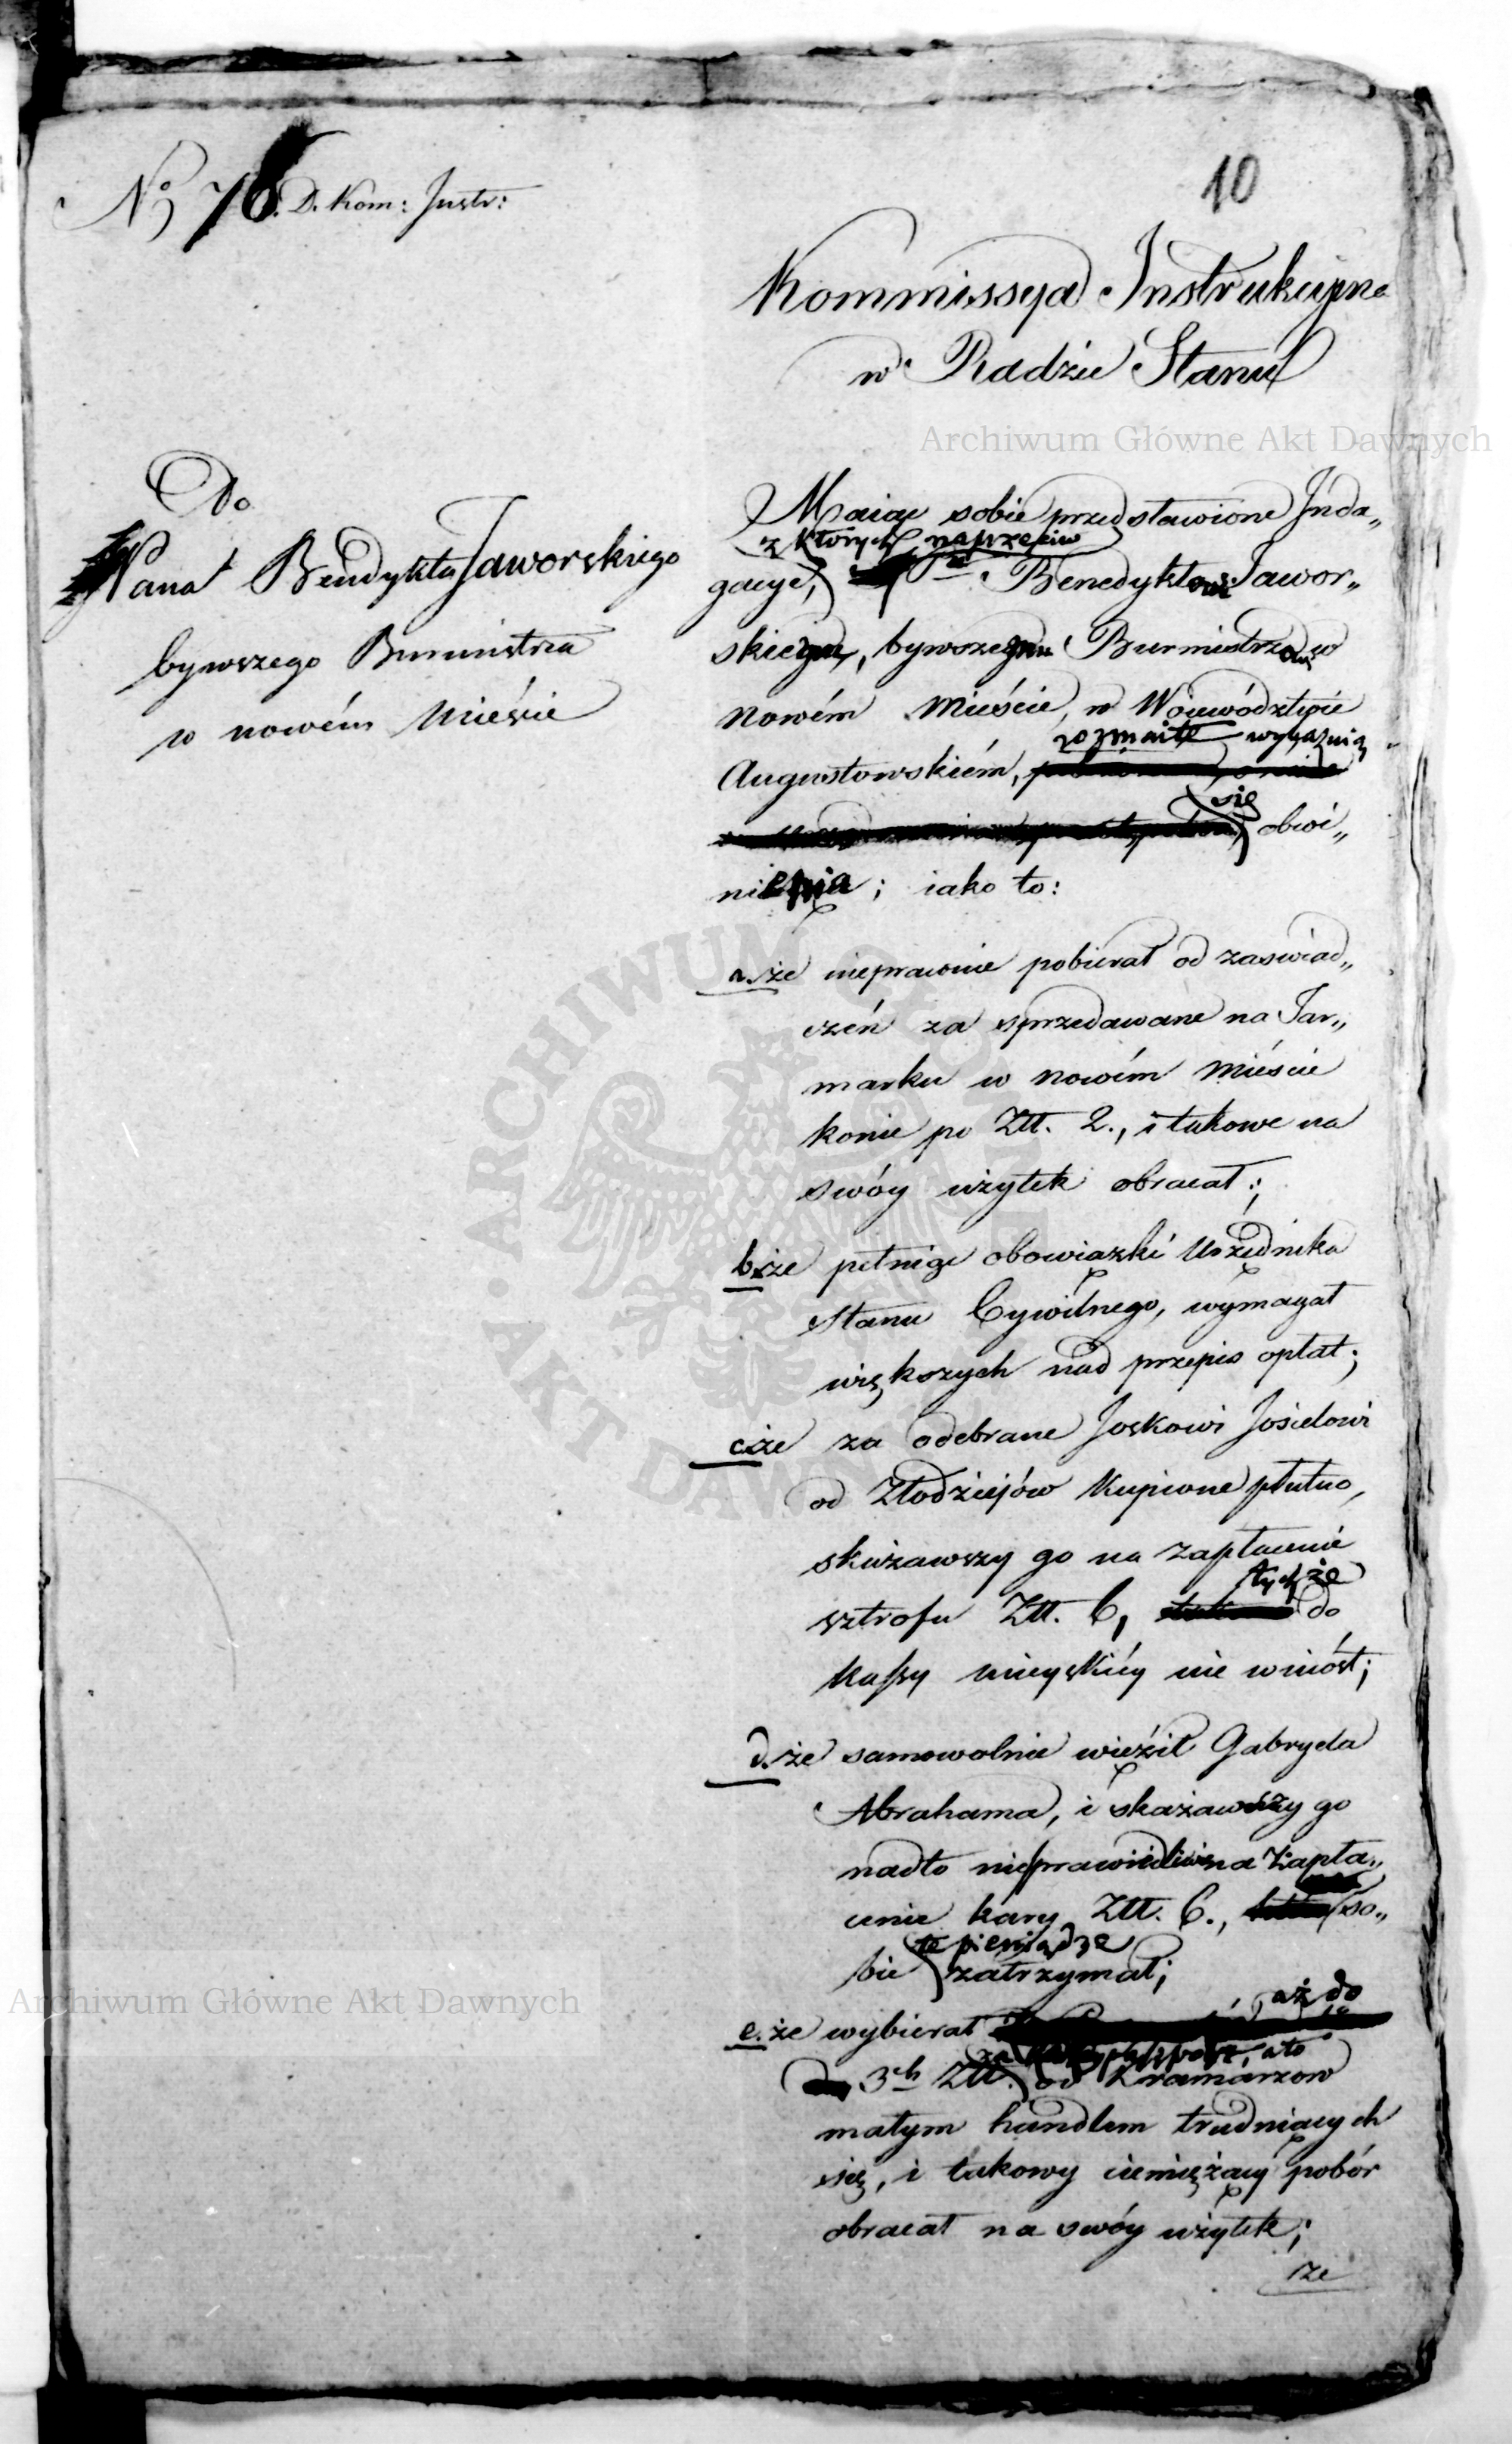 10
No 76. D. Kom: Instr:
Kommissya Instrukcyjna
w Radzie Stanu
Archiwum Główne Akt Dawnych
Do
Pana Benedykta Jaworskiego
bywszego Burmistrza
w nowém Mieście
Maiąc sobie przedstawione Inda„
z których naprzeciw
gacye, Pu Benedyktowi Jawor„
skiemu, bywszemu Burmistrzowi w
nowém Mieście, w Woiewództwie
rozmaite wyjaśnią
Augustowskiém,
się
obwi„
nienia; iako to:
a. że nieprawnie pobierał od zaświad„
czeń za sprzedawane na Jar„
marku w nowém Mieście
konie po Ztt. 2., i takowe na
swóy użytek obracał;
b. że pełniąc obowiązki Urzędnika
Stanu Cywilnego, wymagał
większych nad przepis opłat;
c. że za odebrane Joskowi Josielowi
od Złodziejów kupione płutno,
skazawszy go na zapłacenie
tychże
sztrofu Ztt. 6, do
Kassy mieyskiéy nie wniósł;
d. że samowolnie więził Gabryela
Abrahama, i skazawszy go
nadto nieprawidłiwie na zapła„
cenie kary Ztt. 6., so„
te pieniądze
bie zatrzymał;
aż do
e. że wybierał
za paszport, a to
3ch Ztt. od Kramarzow
małym handlem trudniących
się, i takowy ciemiężący pobór
obracał na swóy użytek;
że
Archiwum Główne Akt Dawnych
ARCHIWUM GŁÓWNE AKT DAWNYCH